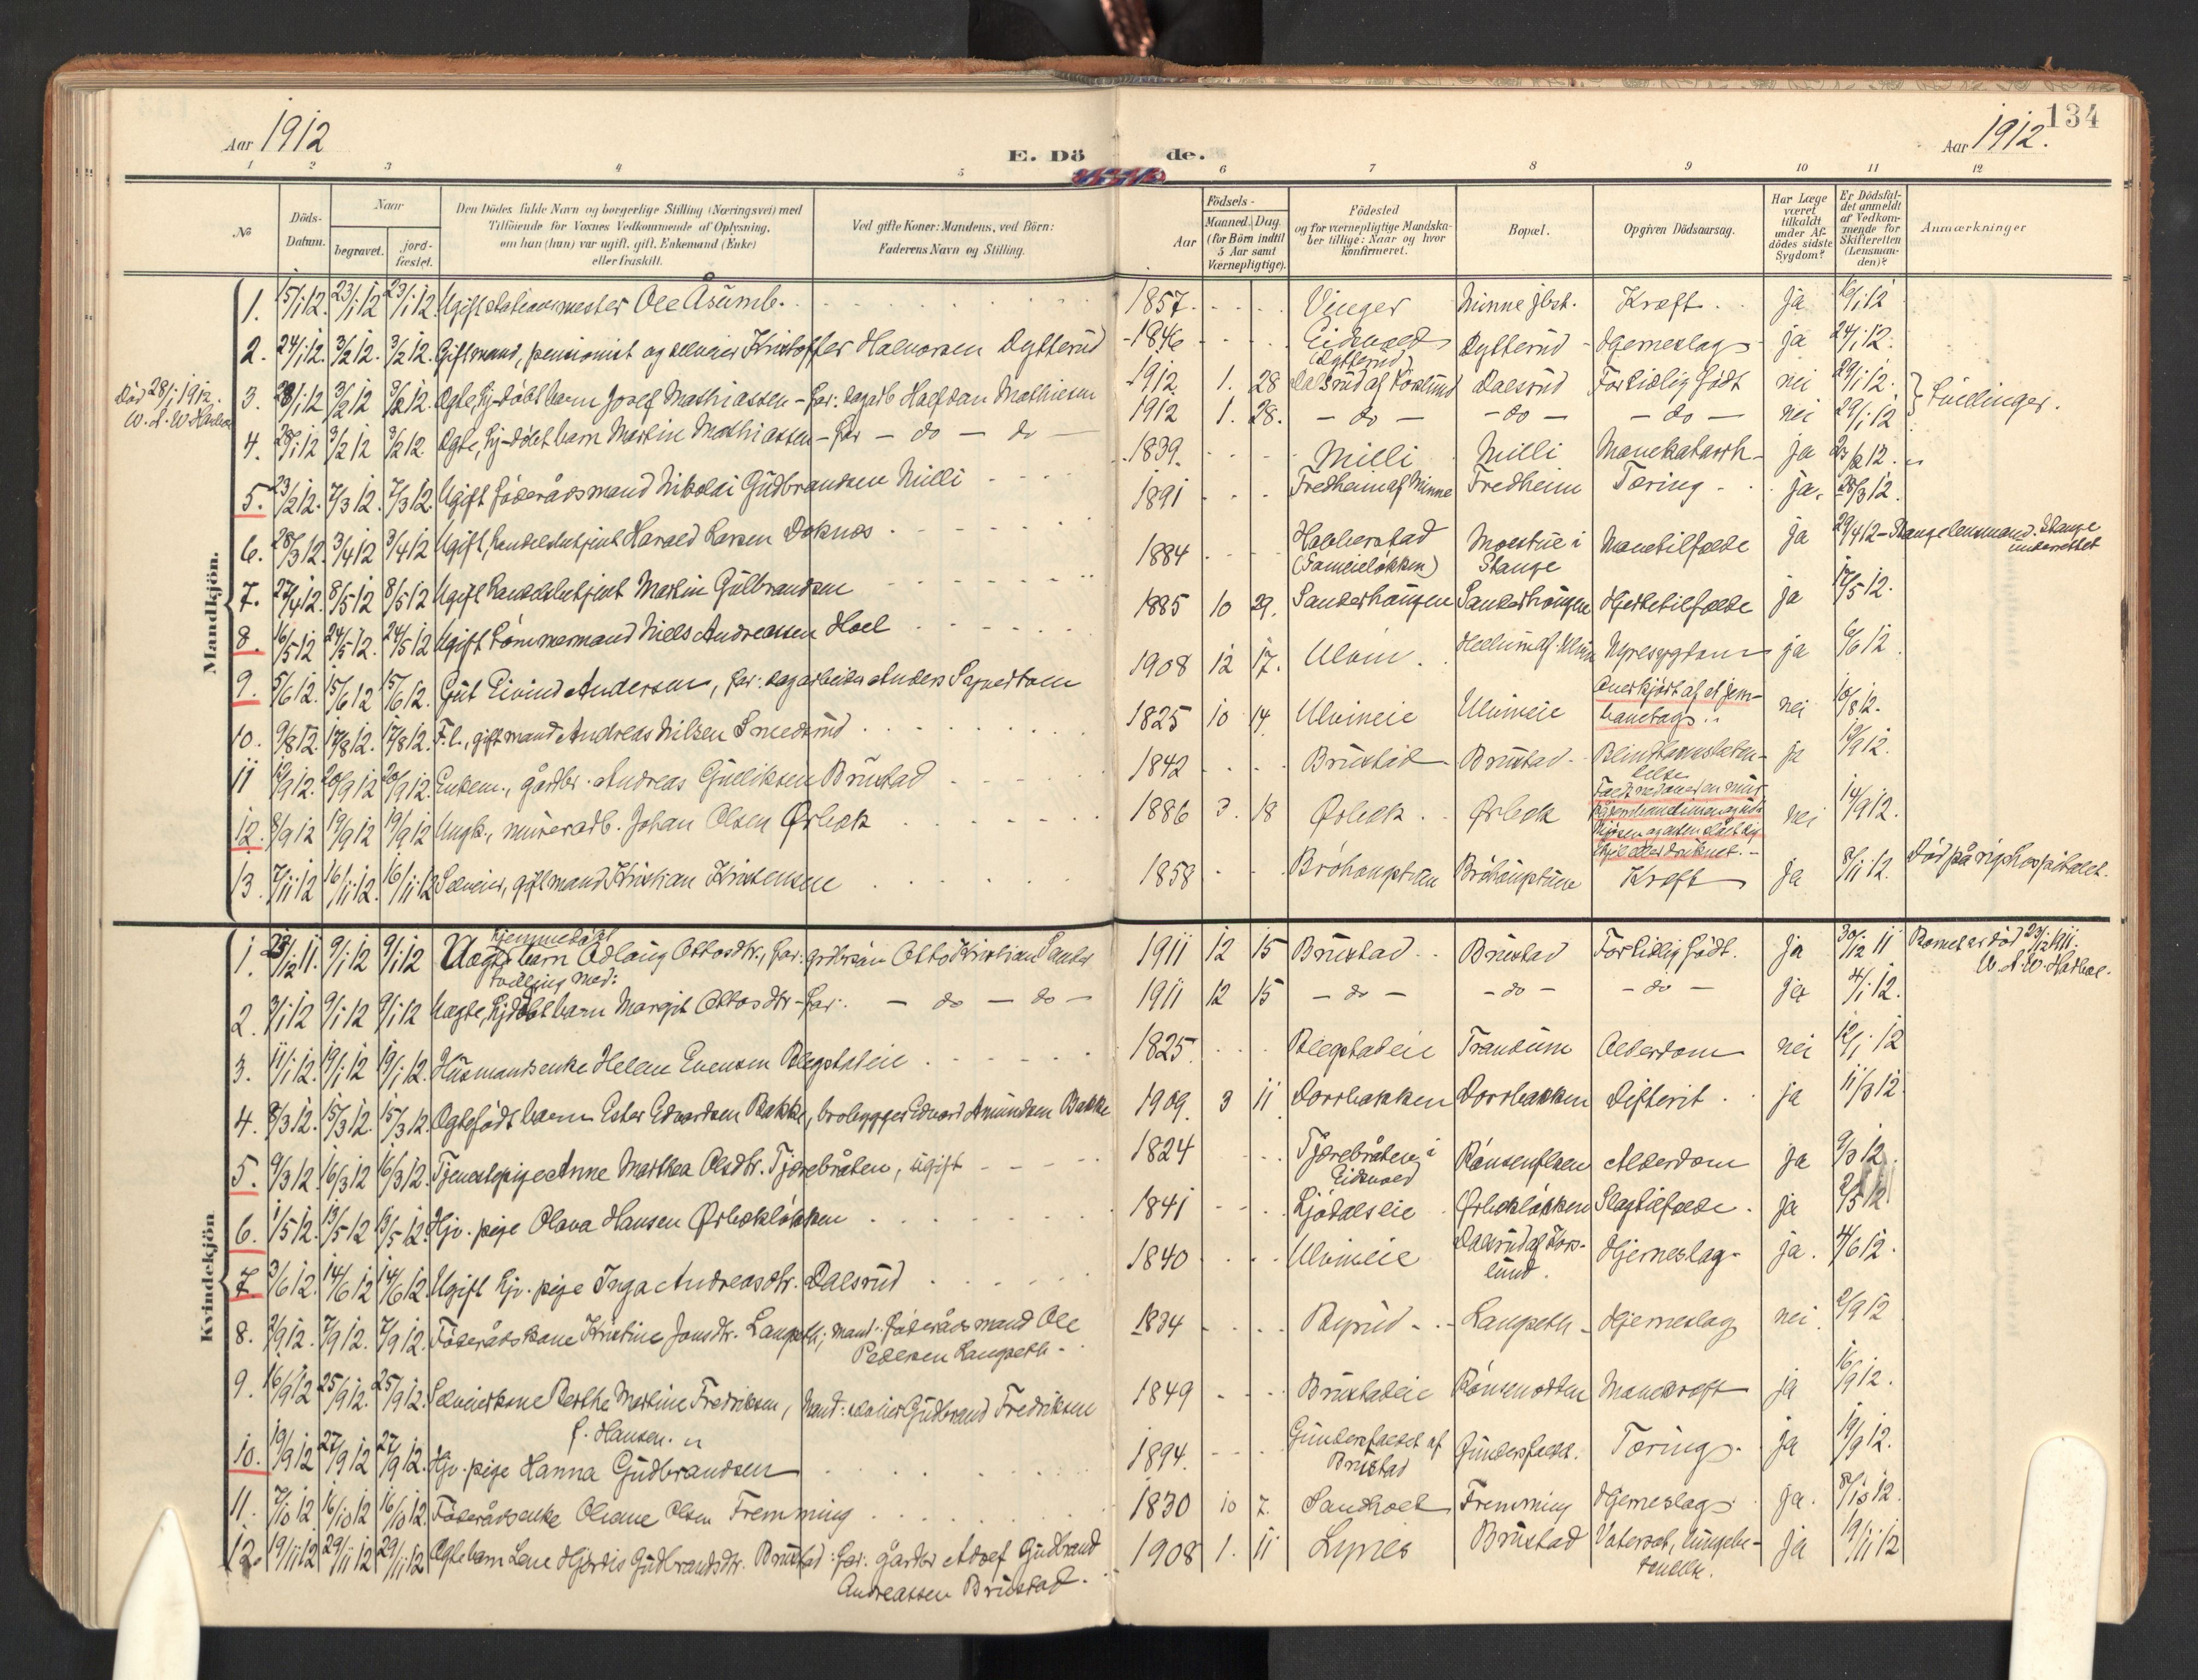 134
Aar 1912
E. Dö de.
Aar 1912.
1 2 3 4 5 6 7 8 9 10 11 12
No
Döds-Datum.
Naar
begravet.
jord-fæstet.
Den Dödes fulde Navn og borgerlige Stilling (Næringsvei) med
Tilföiende for Voxnes Vedkommende af Oplysning,
om han (hun) var ugift, gift, Enkemand (Enke)
eller fraskilt.
Ved gifte Koner: Mandens, ved Börn:
Faderens Navn og Stilling.
Födsels-
Aar
Maaned. Dag
(for Börn indtil
5 Aar samt
Værnepligtige).
Födested
og for værnepligtige Mandska-
ber tillige: Naar og hvor
Konfirmeret.
Bopæl.
Opgiven Dödsaarsag.
Har Læge
været
tilkaldt
under Af-
dödes sidste
Sygdom?
Er Dödsfal-
det anmeldt
af Vedkom-
mende for
Skifteretten
(Lensman-
den)?
Anmærkninger
Mandkjön.
1. 15/1 12. 23/1 12 23/1 12. Ugift stationsmester Ole Åsumb. 1857. Vinger Minne jbst. Kræft. ja 16/1 12
2. 24/1 12. 3/2 12. 3/2 12. Gift mand, pensionist og selveier Kristoffer Halvorsen Dytterud 1846 Eidsvold (Dytterud) Dytterud Hjerneslag ja 24/1 12.
Död 28/1 1912.
3. 28/1 12 3/2 12 3/2 12. Ægte, hj-döbt barn Josef Mathiassen - Far: dagarb Halfdan Mathiesen 1912 1. 28 Dalsrud af Röslund Dalsrud For tidlig födt nei 29/1 12. } Tvillinger.
4. 28/1 12 3/2 12 3/2 12. Ægte, hj-döbt barn Martin Mathiassen - Far - do - do - 1912 1. 28. - do - - do - - do - nei 29/1 12
5. 23/2 12. 7/3 12. 7/3 12. Ugift föderådsmand Nikolai Gudbrandsen Milli 1839. Milli Milli Mavekatarrh ja 23/2 12.
6. 28/3 12. 3/4 12 3/4 12 Ugift, handelsbetjent Harald Larsen Doknes 1891 Fredheim af Minne Fredheim Tæring ja. 28/3 12.
7. 27/4 12. 8/5 12 8/5 12 Ugift handelsbetjent Martin Gulbrandsen 1884 Habberstad Moestue i Stange Mavetilfælde ja 29/4 12 - Stange lensmand. Stange underrettet
8. 16/5 12 24/5 12. 24/5 12 Ugift tömmermand Niels Andreassen Hoel 1885 10 29. Sanderhaugen Sanderhaugen Hjertetilfælde ja 17/5 12.
9. 5/6 12. 15/6 12 15/6 12. Gut Eivind Andersen, far: dagarbeider Anders 1908 12 17. Ulvin. Nyresygdom ja 6/6 12.
10. 9/8 12. 17/8 12. 17/8 12. F.l., gift mand Andreas Nilsen Smedsrud 1825 10 14 Ulvineie Ulvineie Overkjört af et jern-
banetog. nei 10/8 12.
11 12/9 12. 20/9 12 20/9 12. Enkem., gårdbr. Andreas Gulliksen Brustad 1842 Brustad Brustad Blindtarmsbeten-
delse ja 12/9 12.
12. 8/9 12 19/9 12 19/9 12 Ungk., murerarb. Johan Olsen Ørbæk 1886 3. 18 Ørbæk Ørbæk nei 14/9 12.
13. 7/11 12 16/11 12 16/11 12 Selveier, gift mand Kristian Kristensen 1858 Bröhaugstuen Bröhaugstuen Kræft ja 8/11 12. Död på rigshospitalet.
Kvindekjön
1. 29/12 11. 9/1 12 9/1 12 Uægte hjemmedöbt barn Adlaug Ottosdtr., far: grdbrsön Otto Kristian Sander 1911 12 15 Brustad Brustad For tidlig födt. ja 30/12 11 Barnet er död 29/12 1911.
2. 3/1 12 9/1 12 9/1 12 Uægte, hjdöbt barn Margit Ottosdtr - Far: - do - do - 1911 12 15 - do - - do - - do - ja 4/1 12.
3. 11/1 12. 19/1 12 19/1 12. Husmandsenke Helene Evensen Blegstadeie 1825 Blegstadeie Trandum Alderdom nei 12/1 12
4. 8/3 12. 15/3 12. 15/3 12. Ægtefödt barn Ester Edvardsen Bakke, brobygger Edvard Amundsen Bakke 1909. 3 11 Dorrbakken Dorrbakken Difterit ja 11/3 12.
5. 9/3 12. 16/3 12 16/3 12. Tjenestepige Anne Marthea Olsdtr. Tjærebråten, ugift 1824 Tjærebråten i Eidsvold Alderdom ja 9/3 12.
6. 1/5 12. 13/5 12 13/5 12. Hjv. pige Olava Hansen Ørbækløkken 1841 Ljödalseie Ørbækløkken Slagtilfælde ja 2/5 12.
7. 3/6 12. 14/6 12 14/6 12. Ugift hjv. pige Inga Andreasdtr. Dalsrud 1840 Ulvineie Dalsrud af Rös-
lund. Hjerneslag ja. 4/6 12.
8. 2/9 12. 7/9 12. 7/9 12. Föderådskone Kristine Jonsdtr. Langseth; mand: föderådsmand Ole
Pedersen Langseth 1834 Byrud Langseth Hjerneslag nei 2/9 12
9. 16/9 12 25/9 12. 25/9 12. Selveierkone Berthe Martine Fredriksen, Mand: selveier Gudbrand Fredriksen
f. Hansen. 1849 Brustadeie Mavekræft ja 16/9 12.
10. 19/9 12 27/9 12 27/9 12. Hjv. pige Hanna Gudbrandsen 1894. Gundersfladet af Brustad Tæring ja 19/9 12.
11. 7/10 12 16/10 12 16/10 12. Föderådsenke Oliane Olsen Fremming 1830 10 7. Sandholt Fremming Hjerneslag ja. 8/10 12.
12. 19/11 12 29/11 12 29/11 12 Ægtebarn Lene Hjördis Gudbrandsdtr. Brustad: far: gårdbr Adolf Gudbrand
Andreassen Brustad. 1908 1. 11 Lynes Brustad Vatersot, lungebe-
tendelse. ja 19/11 12